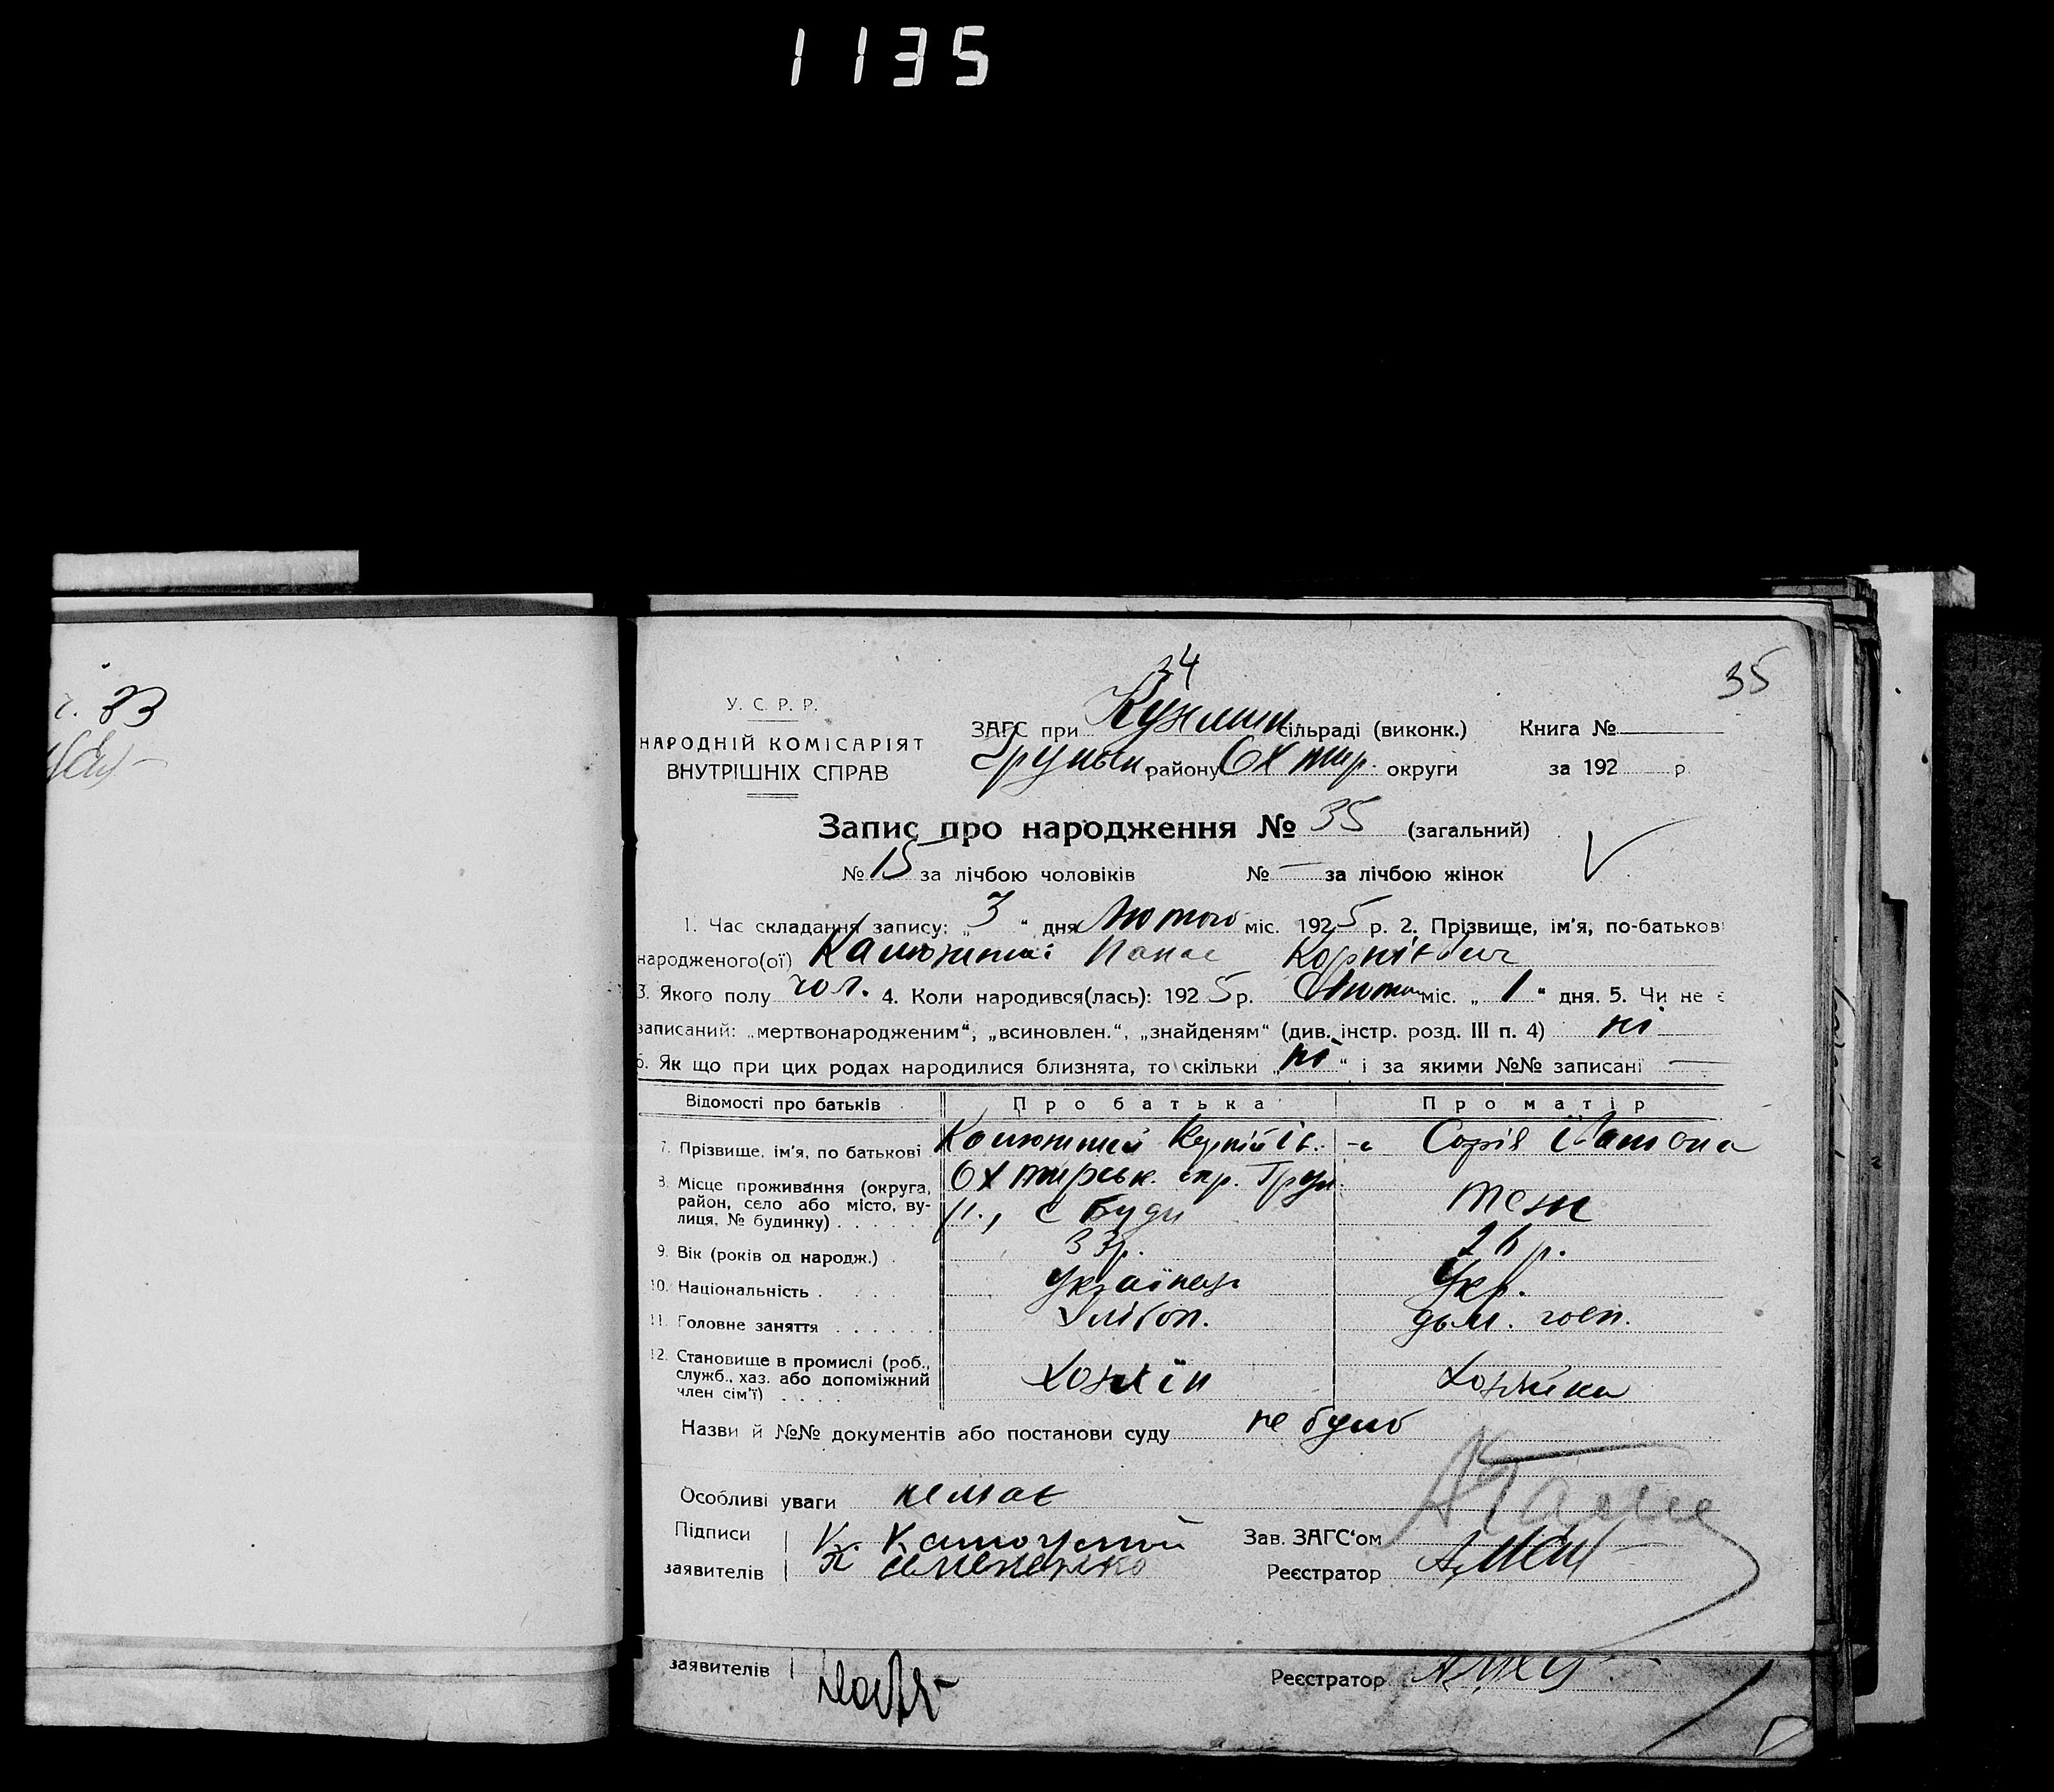 1135
г. 33
34
35
У. С. Р. Р.
НАРОДНІЙ КОМІСАРІЯТ
ВНУТРІШНІХ СПРАВ
ЗАГС при сільраді (виконк.) Книга №
району Охтир. округи за 192 р.
Запис про народження № 35 (загальний)
№ 15 за лічбою чоловіків № — за лічбою жінок
1. Час складання запису: „ 3 “ дня Лютого міс. 1925 р. 2. Прізвище, ім'я, по-батькові
народженого(ої) Калюжний Панас Корнієвич
3. Якого полу чол. 4. Коли народився(лась): 1925 р. міс. „ 1 “ дня. 5. Чи не є
записаний: „мертвонародженим“, „всиновлен.“, „знайденям“ (див. інстр. розд. III п. 4) ні
6. Як що при цих родах народилися близнята, то скільки „ ні “ і за якими №№ записані —
Відомості про батьків Про батька Про матір
7. Прізвище, ім'я, по батькові Калюжний Корній Ів. -а Софія Івановна
8. Місце проживання (округа, район, село або місто, вулиця, № будинку) Охтирськ. окр. Грун.
р., с Буди теж
9. Вік (років од народж.) 33 р. 26 р.
10. Національність Українець Укр.
11. Головне заняття Хлібоп. дом. госп.
12. Становище в промислі (роб., служб., хаз. або допоміжний член сім'ї) Хозяїн Хозяйка
Назви й №№ документів або постанови суду не було
Особливі уваги немає
Підписи К. Калюжний Зав. ЗАГС'ом
заявителів Семененко Реєстратор
заявителів Реєстратор